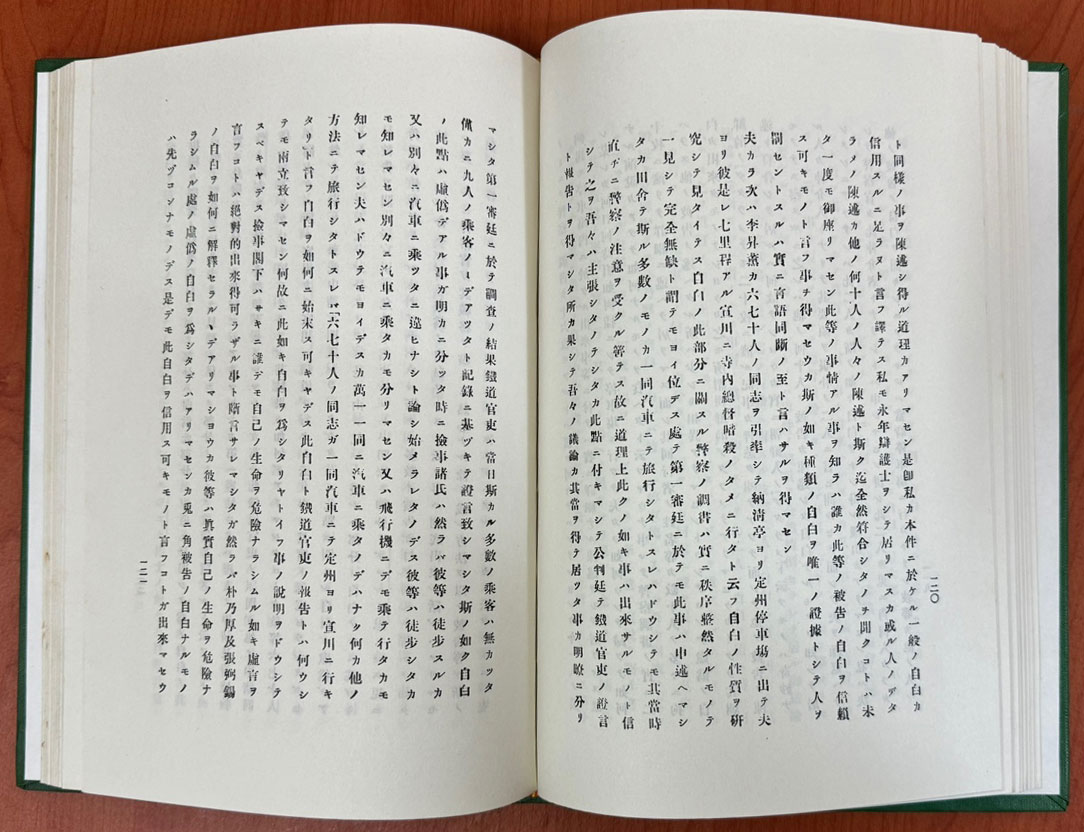 一二〇
ト同樣ノ事ヲ陳述シ得ル道理カアリマセン是卽私カ本件ニ於ケル一般ノ自白カ
信用スルニ足ラヌト言フ譯テス私モ永年辯護士ヲシテ居リマスカ或ル人ノアタ
ラメノ陳述カ他ノ何十人ノ人々ノ陳述ト斯ク迄全然符合シタノヲ聞クコトハ未
タ一度モ御座リマセン此等ノ事情アル事ヲ知ラハ誰カ此等ノ被告ノ自白ヲ信賴
ス可キモノト言フ事チ得マセウカ斯ノ如キ種類ノ自白ヲ唯一ノ證據トシテ人ヲ
罰セントスルハ實ニ言語同斷ノ至ト言ハサルヲ得マセン
夫カラ次ハ李昇薰カ六七十人ノ同志ヲ引率シテ納淸亭ヨリ定州停車場ニ出テ夫
ヨリ彼是レ七里程アル宣川ニ寺內總督暗殺ノタメニ行タト云フ自白ノ性質ヲ硏
究シテ見タイテス自白ノ此部分ニ關スル警察ノ調書ハ實ニ秩序整然タルモノテ
一見シテ完全無缺ト謂テモヨイ位デス處テ第一審廷ニ於テモ此事ハ申述ヘマシ
タカ田舍テ斯ル多數ノモノカ一同汽車ニテ旅行シタトスレハドウシテモ其當時
直チニ警察ノ注意ヲ受クル筈テス故ニ道理上此クノ如キ事ハ出來サルモノト信
シテ之ヲ吾々ハ主張シタノテシタカ此點ニ付キマシテ公判廷テ鐵道官吏ノ證言
ト報告トヲ得マシタ所カ果シテ吾々ノ議論カ其當ヲ得テ居ツタ事カ明瞭ニ分リ
マシタ第一審廷ニ於テ調査ノ結果鐵道官吏ハ當日斯カル多數ノ乘客ハ無カッタ
僅カニ九人ノ乘客ノミデアツタト記錄ニ基ヅキテ證言致シマシタ斯ノ如ク自白
ノ此點ハ虛僞デアル事ガ明カニ分ッタ時ニ撿事諸氏ハ然ラバ彼等ハ徒步スルカ
又ハ別々ニ汽車ニ乘ツタニ違ヒナシト論シ始メラレタノデス彼等ハ徒步シタカ
モ知レマセン別々ニ汽車ニ乘タカモ分リマセン又ハ飛行機ニデモ乘テ行タカモ
知レマセン夫ハドウテモヨイデスカ萬一一同ニ汽車ニ乘タノデハナク何カ他ノ
方法ニテ旅行シタトスレバ「六七十人ノ同志ガ一同汽車ニテ定州ヨリ宣川ニ行キ
タリ」ト言フ自白ヲ如何ニ始末ス可キヤデス此自白ト鐵道官吏ノ報告トハ何ウシ
テモ兩立致シマセン何故ニ此如キ自白ヲ爲シタリヤトイフ事ノ說明ヲドウシテ
スベキヤデス撿事閣下ハサキニ誰デモ自己ノ生命ヲ危險ナラシムル如キ虛言ヲ
言フコトハ絕對的出來得可ラザル事ト斷言サレマシタガ然ラバ朴乃厚及張弼錫
ノ自白ヲ如何ニ解釋セラルヽデアリマシヨウカ彼等ハ眞實自己ノ生命ヲ危險ナ
ラシムル處ノ虛僞ノ自白ヲ爲シタデハアリマセンカ兎ニ角被告ノ自白ナルモノ
ハ先ヅコンナモノデス是デモ此自白ヲ信用ス可キモノト言フコトガ出來マセウ
一二一